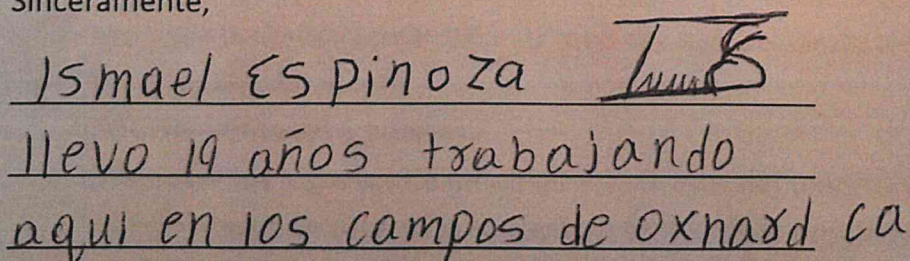 Sinceramente,
Ismael Espinoza
llevo 19 años trabajando
aqui en los campos de oxnard ca